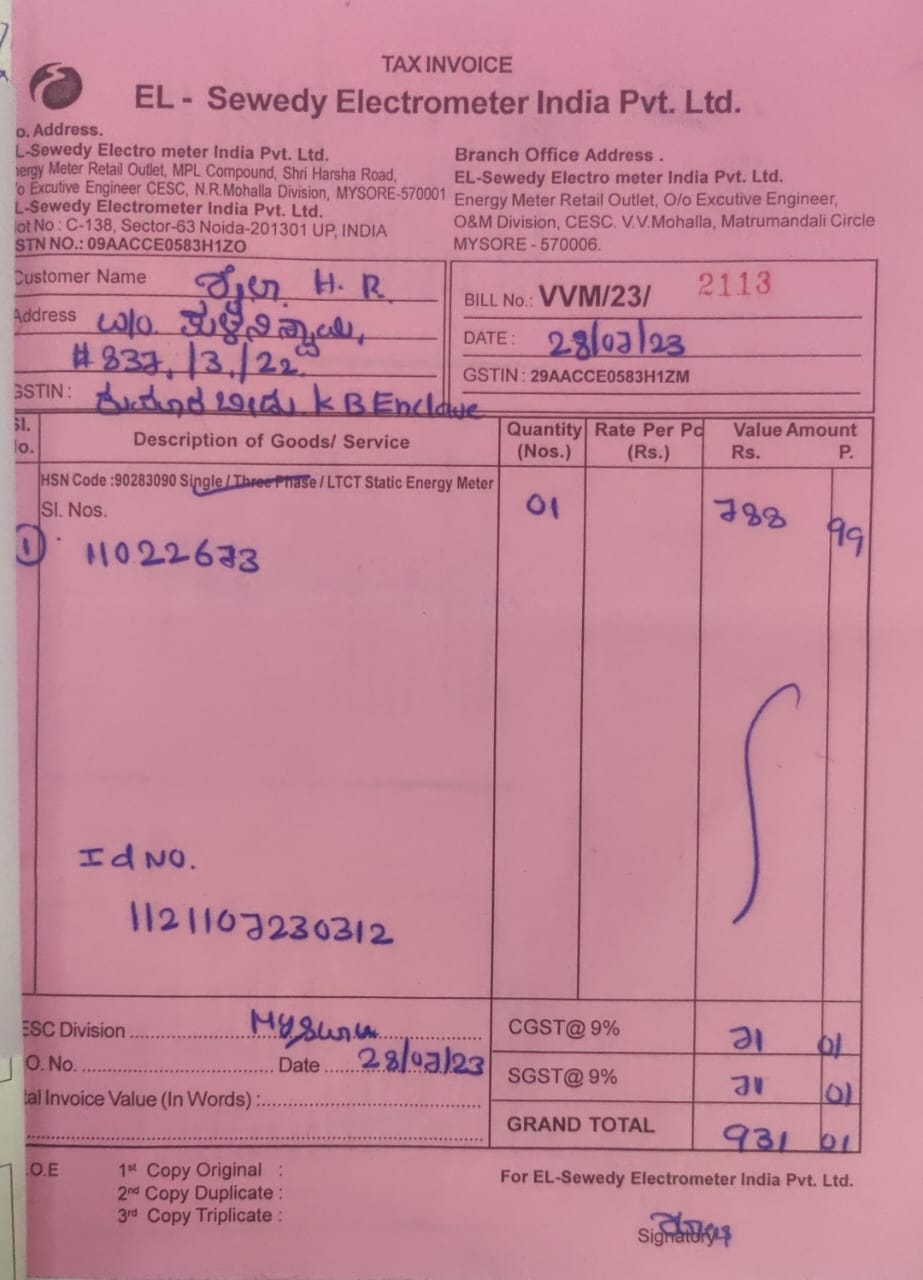 TAX INVOICE
EL - Sewedy Electrometer India Pvt. Ltd.
o. Address.
L-Sewedy Electro meter India Pvt. Ltd.
ergy Meter Retail Outlet, MPL Compound, Shri Harsha Road,
'o Excutive Engineer CESC, N.R.Mohalla Division, MYSORE-570001
L-Sewedy Electrometer India Pvt. Ltd.
lot No : C-138, Sector-63 Noida-201301 UP, INDIA
STN NO.: 09AACCE0583H1ZO
Branch Office Address .
EL-Sewedy Electro meter India Pvt. Ltd.
Energy Meter Retail Outlet, O/o Excutive Engineer,
O&M Division, CESC. V.V.Mohalla, Matrumandali Circle
MYSORE - 570006.
Customer Name H. R
Address
# 837, /3,/22
GSTIN : K B Enclave
BILL No.: VVM/23/ 2113
DATE : 28/07/23
GSTIN : 29AACCE0583H1ZM
Sl. No. Description of Goods/ Service Quantity (Nos.) Rate Per Pc (Rs.) Value Amount Rs. P.
HSN Code :90283090 Single / Three Phase / LTCT Static Energy Meter
Sl. Nos. 01 788 99
① 11022673
Id NO.
1121107230312
ESC Division Mysuru CGST@ 9% 71 01
O. No. Date 28/07/23 SGST@ 9% 71 01
tal Invoice Value (In Words) :
GRAND TOTAL 931 01
.O.E 1st Copy Original :
2nd Copy Duplicate :
3rd Copy Triplicate :
For EL-Sewedy Electrometer India Pvt. Ltd.
Signatory